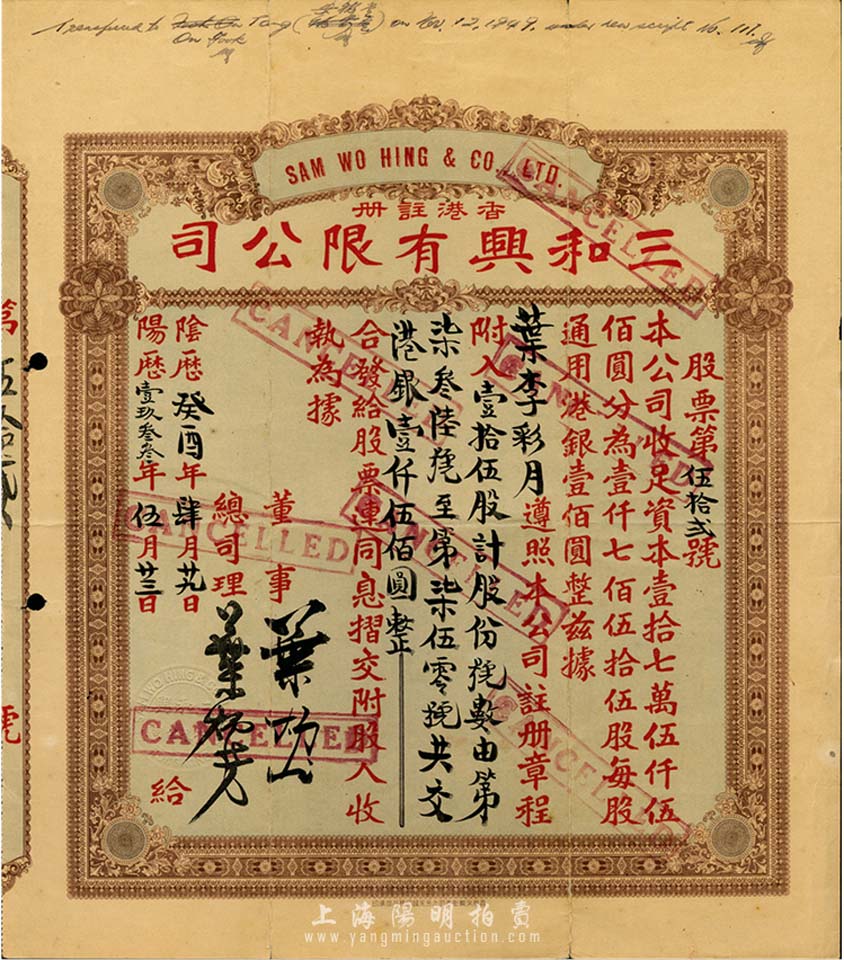 Transferred to On Fook Tong on Nov. 12, 1949. under new script No. 111.
SAM WO HING & CO., LTD.
香港註册
三和興有限公司
股票第伍拾弍號
本公司收足資本壹拾七萬伍仟伍
佰圓分為壹仟七佰伍拾伍股每股
通用港銀壹佰圓整茲據
葉李彩月遵照本公司註册章程
附入壹拾伍股計股份號數由第
柒叁陸號至第柒伍零號共交
港銀壹仟伍佰圓整
合發給股票連同息摺交附股人收
執為據
董事
總司理
給
陰歷癸酉年肆月廿九日
陽歷壹玖叁叁年伍月廿三日
第伍拾弍號
CANCELLED
CANCELLED
CANCELLED
CANCELLED
CANCELLED
CANCELLED
CANCELLED
上海陽明拍賣
www.yangmingauction.com